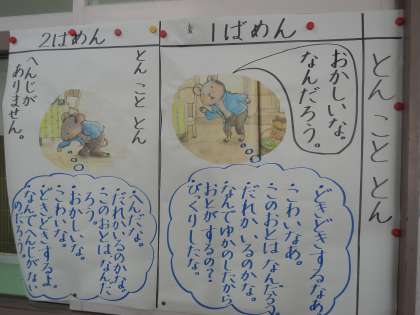 とん こと とん
1ばめん
おかしいな。
なんだろう。
どきどきするなあ。
こわいなぁ。
このおとは、なんだろう。
だれかいるのかな。
なんでゆかのしたから
おとがするの?
びっくりしたな。
2ばめん
とん こと とん
へんじが
ありません。
へんだな。
だれかいるのかな。
このおとは、なんだ
ろう。
おかしいな。
こわいな。
どきどきするよ。
なんで、へんじがない
のだろう。